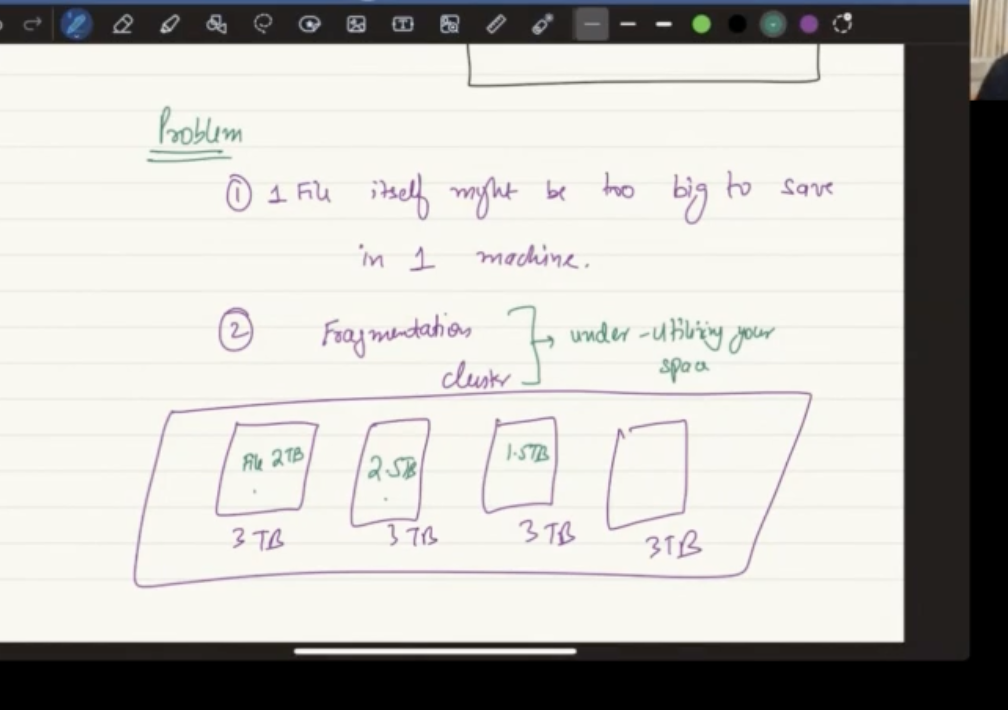 Problem
① 1 File itself might be too big to save
in 1 machine.
② Fragmentation → under-utilizing your
space
cluster
File 2TB 2.5TB 1.5TB
3TB 3TB 3TB 3TB